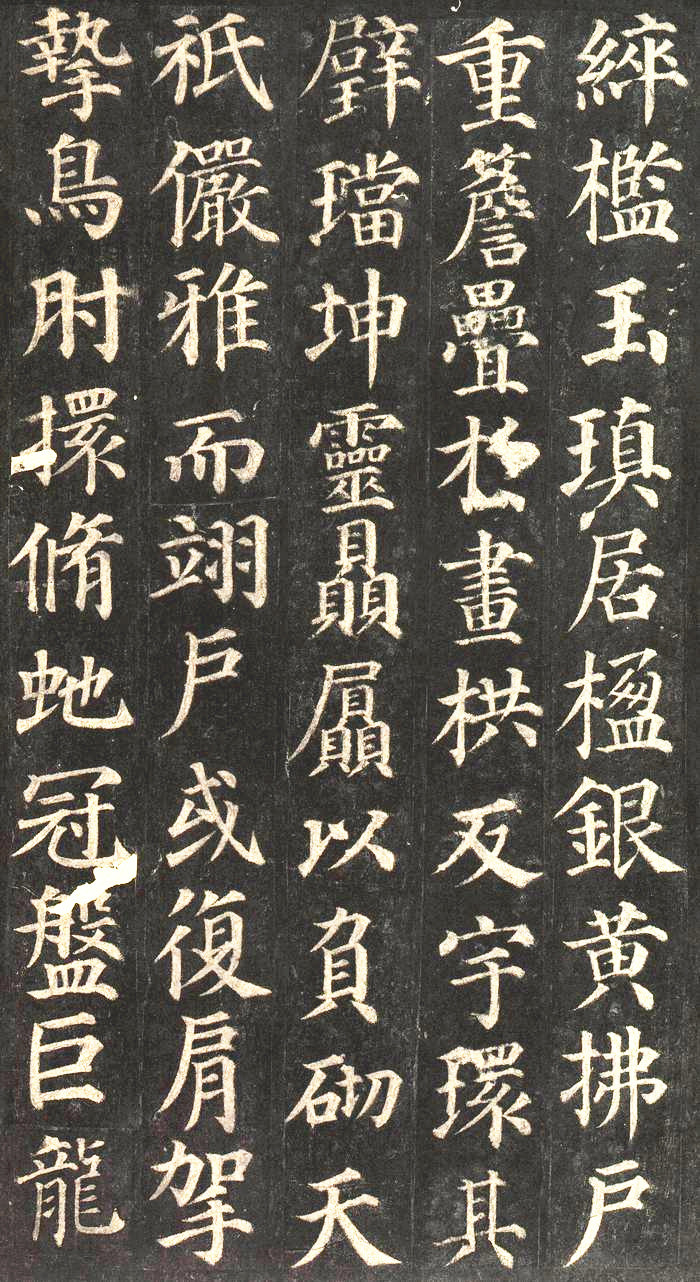 綷檻玉瑱居楹銀黄拂户
重簷疊於畫栱反宇環其
璧璫坤靈贔屭以負砌天
祇儼雅而翊户或復肩挐
摯鳥肘擐脩虵冠盤巨龍